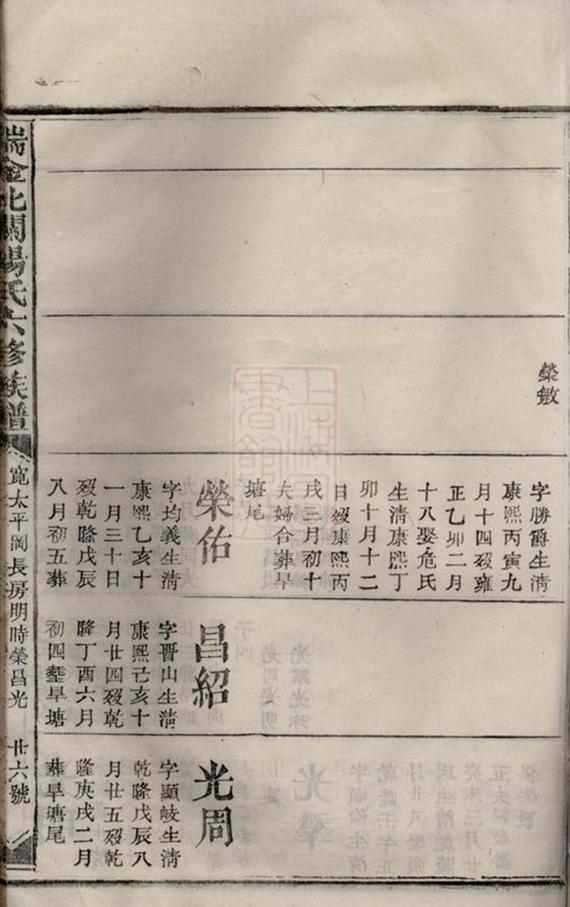 榮敏
字勝爵生淸
康熙丙寅九
月十四歿雍
正乙卯二月
十八娶危氏
生淸康熙丁
卯十月十二
日歿康熙丙
戌三月初十
夫婦合葬旱
塘尾
榮佑
字均義生淸
康熙乙亥十
一月三十日
歿乾隆戊辰
八月初五葬
昌紹
字晋山生淸
康熙己亥十
月廿四歿乾
隆丁酉六月
初四塟旱塘
光周
字顯岐生淸
乾隆戊辰八
月廿五歿乾
隆庚戌二月
葬旱塘尾
瑞金北關楊氏六修族譜
寬太平岡長房明時榮昌光
廿六號
上海圖書館